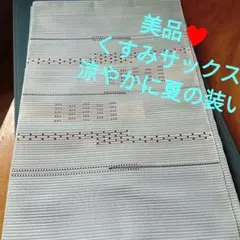 美品❤
くすみサックス
涼やかに夏の装い